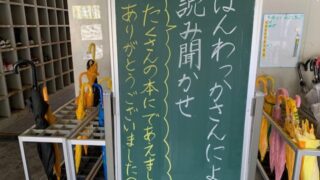 ほんわかさんによ
読み聞かせ
たくさんの本にであえまし
ありがとうございました。